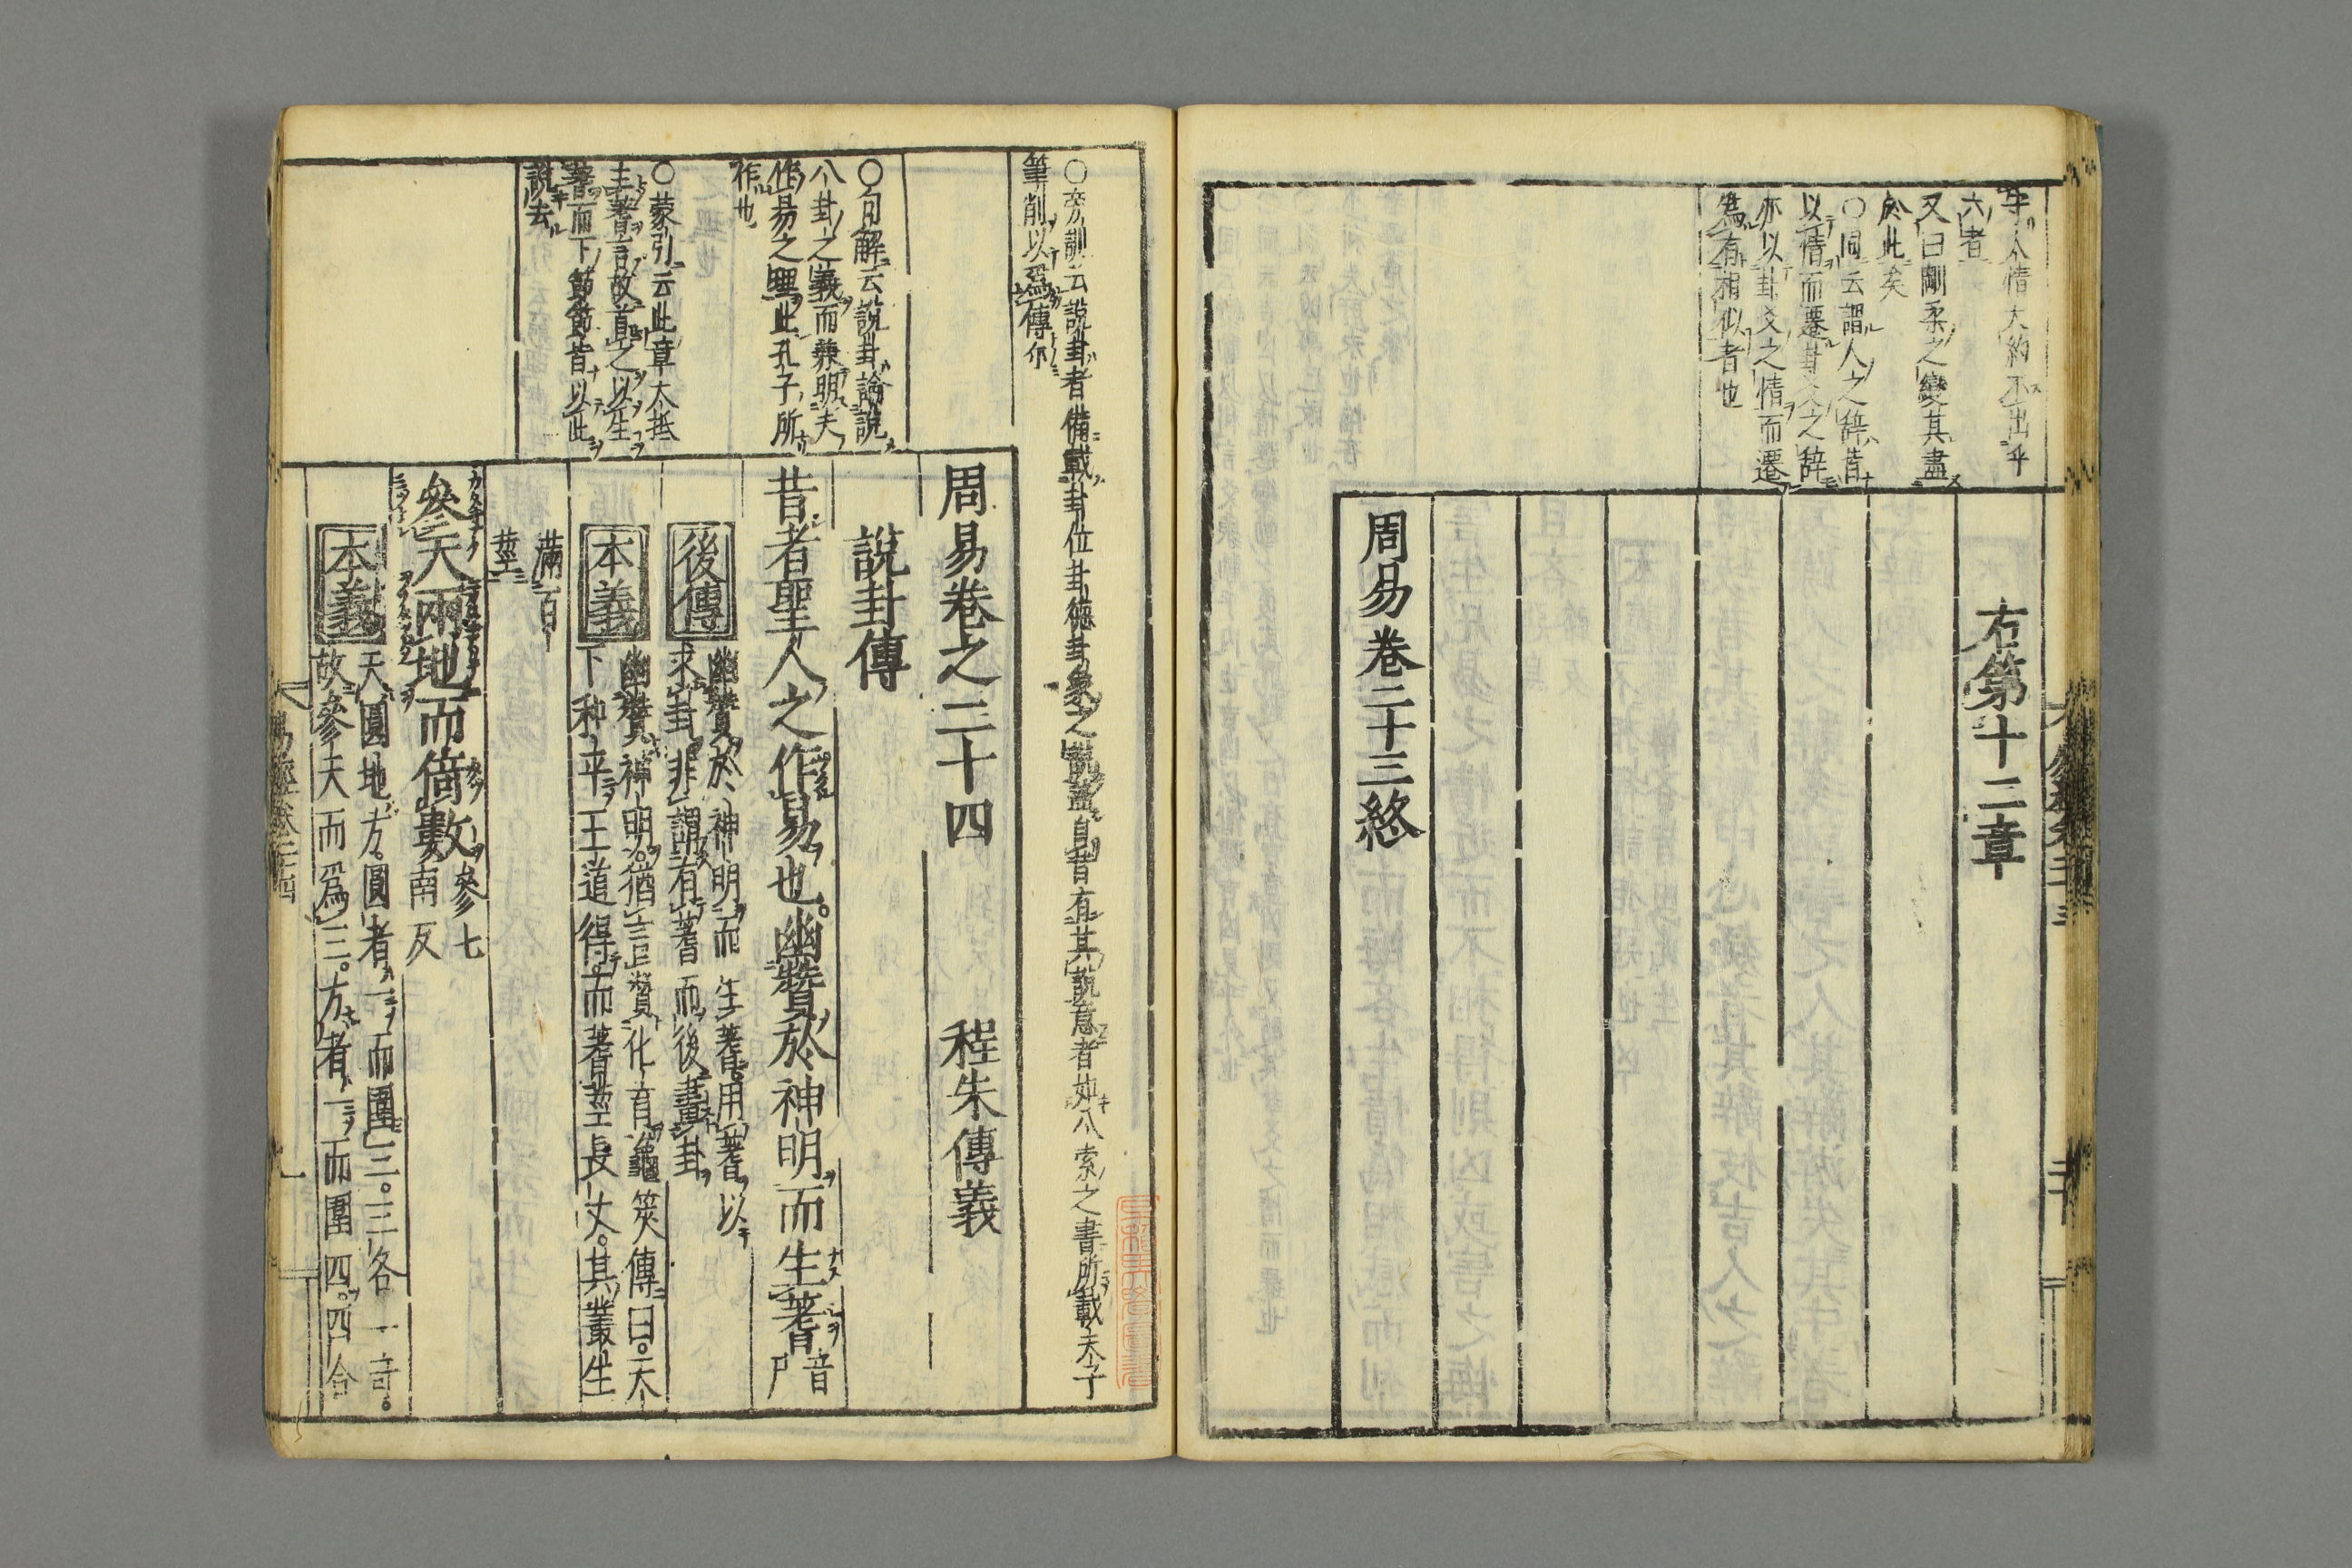 守太情大約不出乎
六者
又曰剛柔之變其盡
於此矣
○同云謂人之辞皆
以情而遷卦爻之辞
亦以卦爻之情而遷
爲有相似者也
右第十二章
周易卷二十三終
○旁訓云說卦者備載卦位卦德卦象之說蓋自昔有其說意者如八索之書所載夫子
筆削以爲傳尓
○句解云說卦論說
八卦之義而兼明夫
作易之理此孔子所
作也
○蒙引云此章大抵
主蓍言故首之以生
蓍而下節節皆以此
說去
周易卷之二十四 程朱傳義
說卦傳
昔者聖人之作易也。幽贊於神明而生蓍音尸
後傳
幽贊於神明而生蓍用蓍以
求卦非謂有蓍而後畫卦
本義
幽贊神明。猶言贊化育。龜筴傳曰。天
下和平。王道得。而蓍莖長丈。其叢生
滿百
莖
參天兩地而倚數參七南反
本義
天圓地方。圓者一而圍三。三各一奇。
故參天而爲三。方者一而圍四。四合
易經卷二十四
一